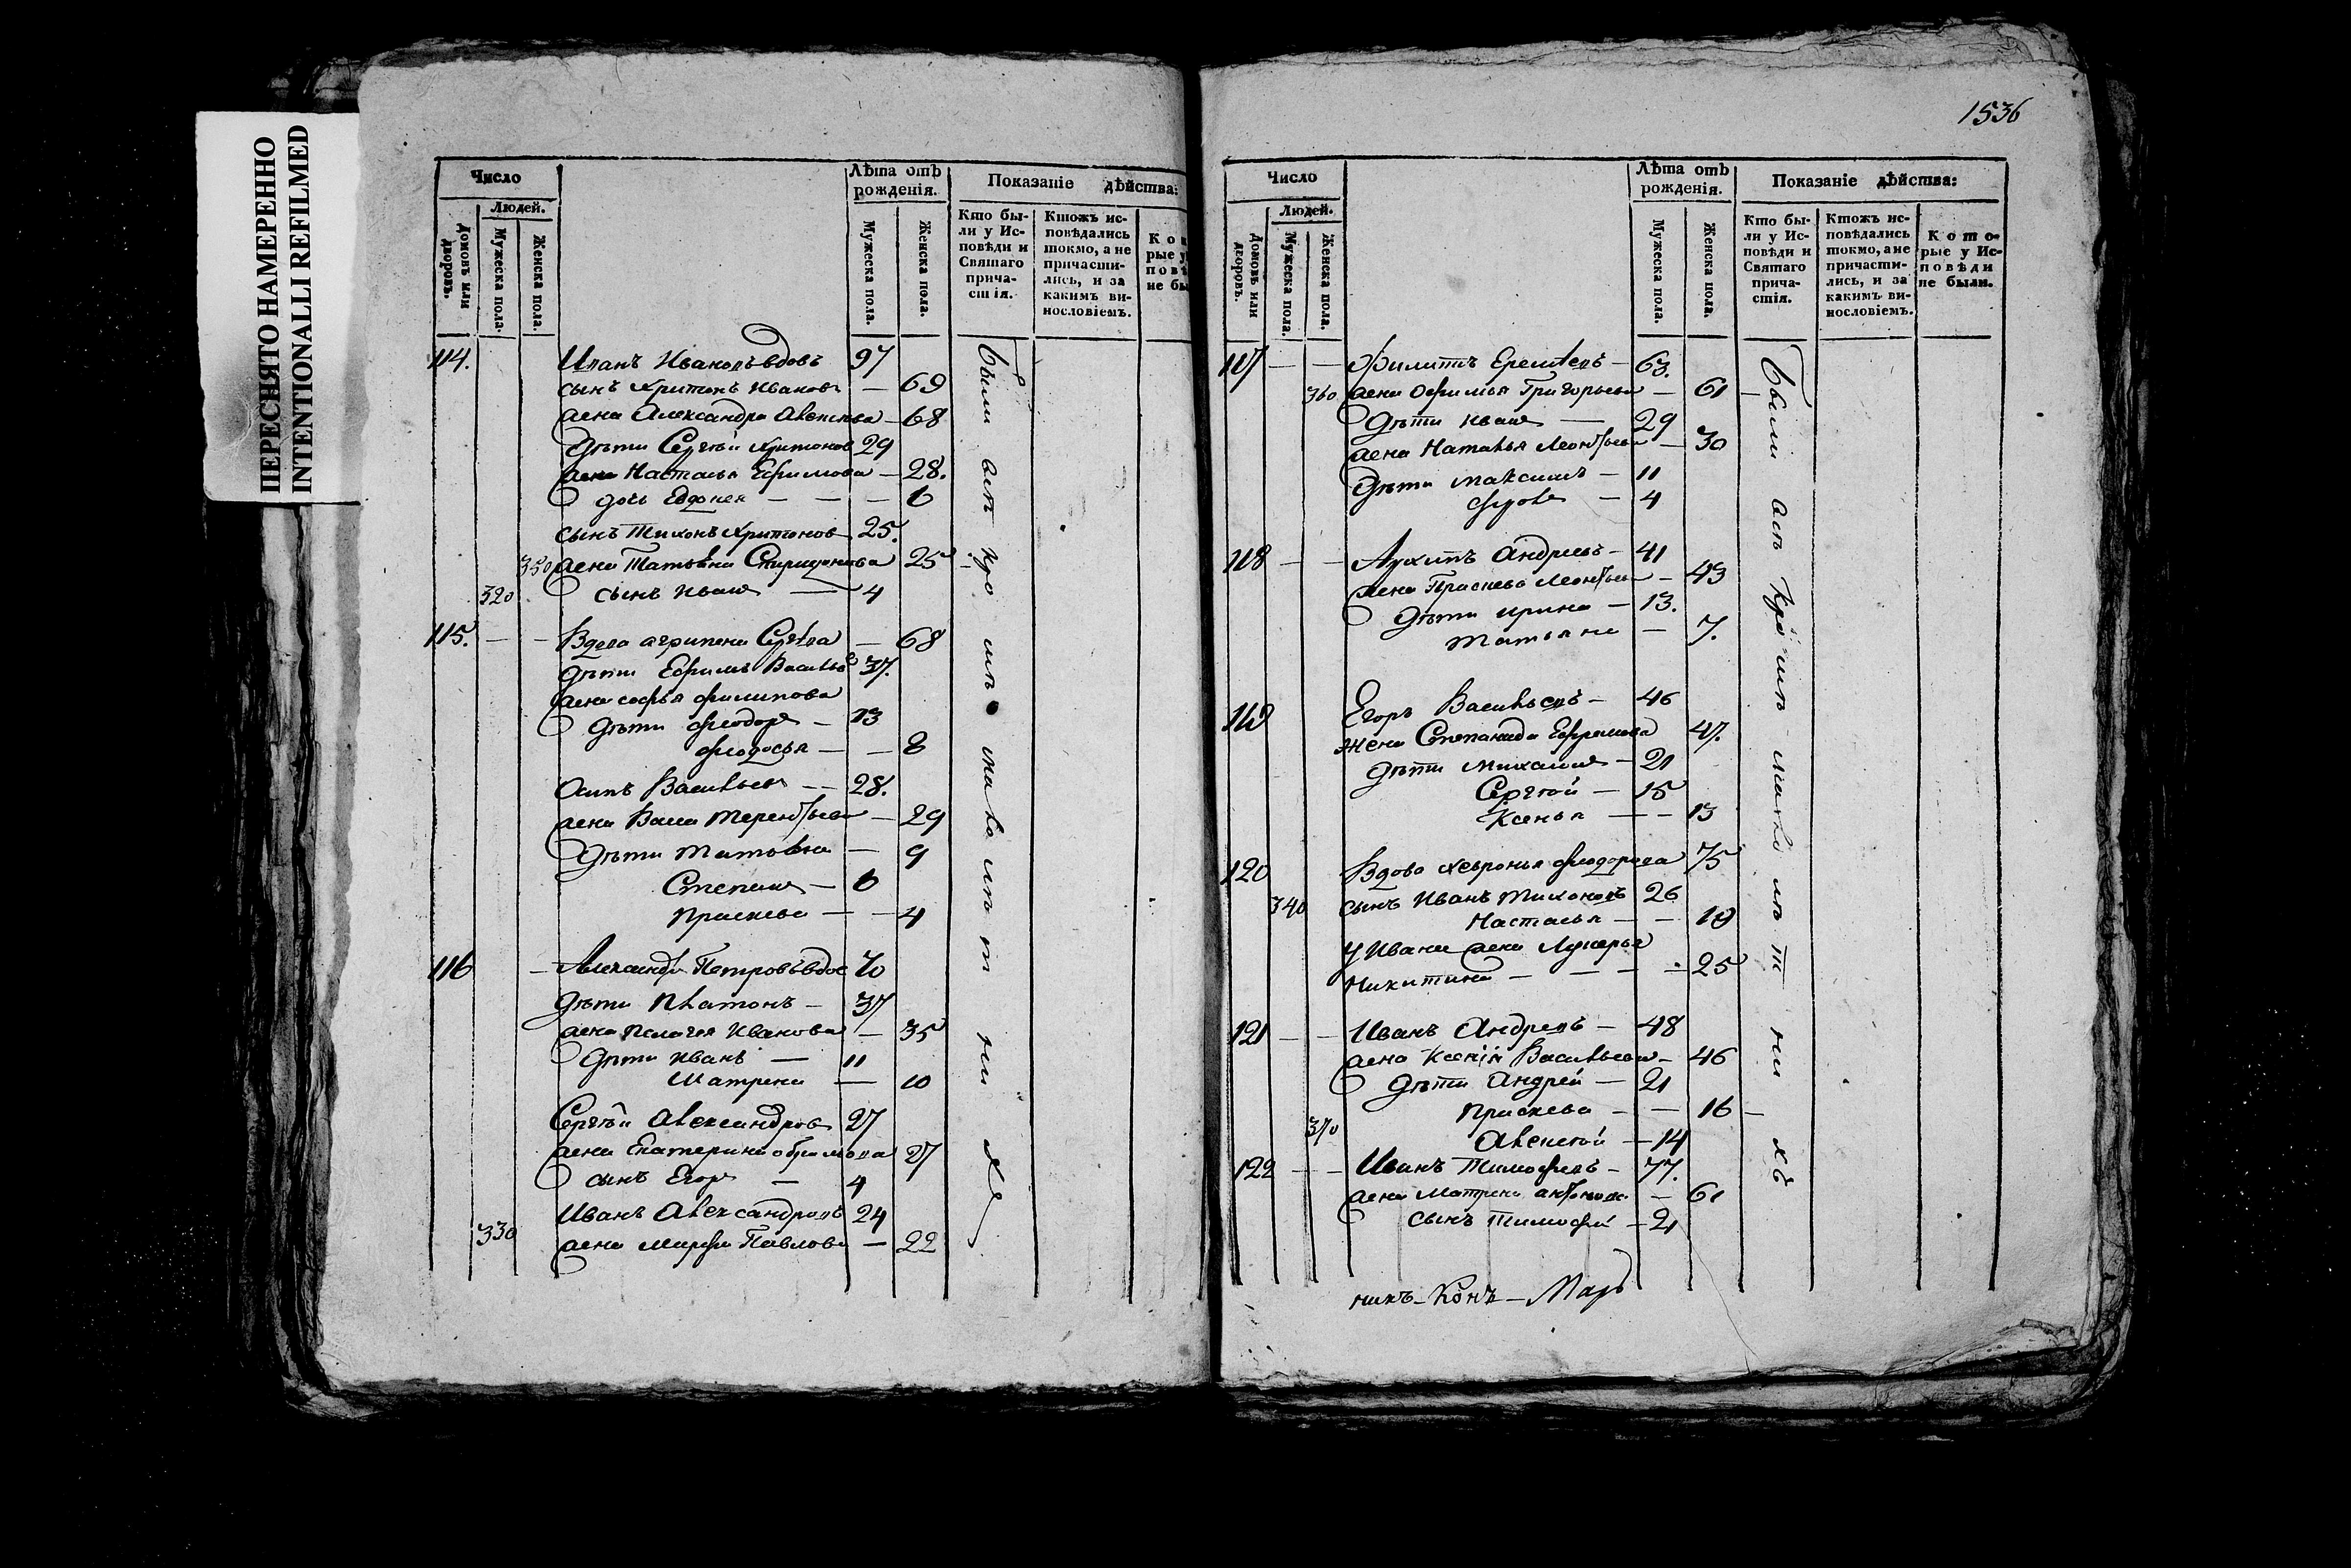 ПЕРЕСНЯТО НАМЕРЕННО
INTENTIONALLI REFILMED
Число
Людей.
Домовъ или дворовъ.
Мужеска пола.
Женска пола.
Лѣта отъ рожденія.
Мужеска пола.
Женска пола.
Показаніе дѣйства:
Кто бы-
ли у Ис-
повѣди и
Святаго
прича-
стія.
Ктожъ ис-
повѣдались
токмо, а не
причасти-
лись, и за
какимъ ви-
нословіемъ.
114. Иванъ Ивановъ вдовъ 97
сынъ Харитонъ Иванов — 69
жена Александра Алексѣева — 68
дѣти Сергѣй Харитонов 29
жена Настасья Ефимова — 28.
дочь Евдокея — — — 6
сынъ Тихонъ Харитонов 25.
350 жена Татьяна Спиридонова 25
320 сынъ Иванъ — 4
115. — — Вдова Агрипена Сергѣева — 68
дѣти Ефимъ Васильев 37.
жена софья филипова
дѣти феодоръ — 13
феодосья — — 8
Осипъ Васильев — — 28.
жена Васса Терентьева — 29
дѣти Татьяна — 9
Степанъ — 6
Праскева — — 4
116 — Александръ Петровъ вдов 70
дѣти Платонъ — 37
жена пелагея Иванова — 35
дѣти Иванъ — 11
Матрена — 10
Сергѣй Александров 27
жена Екатерина 27
сынъ Егоръ — 4
Иванъ Александровъ 24
330 жена Марфа Павлова — 22
Были
1536
Число
Людей.
Домовъ или дворовъ.
Мужеска пола.
Женска пола.
Лѣта отъ рожденія.
Мужеска пола.
Женска пола.
Показаніе дѣйства:
Кто бы-
ли у Ис-
повѣди и
Святаго
прича-
стія.
Ктожъ ис-
повѣдались
токмо, а не
причасти-
лись, и за
какимъ ви-
нословіемъ.
Кото-
рые у Ис-
повѣди
не были.
117 — — Филиппъ Еремѣевъ — 63.
360 жена Офимья Григорьева — 61
дѣти Иванъ — 29
жена Наталья Леонтьева — 30
дѣти Максимъ — 11
фролъ — 4
118 — — Архипъ Андреевъ — 41
жена Праскева Леонтьева — 43
дѣти ирина — 13.
татьяна — 7.
119 Егоръ Васильевъ — 46
жена Степанида Ефремова 47.
дѣти Михаилъ — 21
Сергѣй — 15
Ксенья — — 13
120 Вдова Хевронья феодорова 75
340 сынъ Иванъ Тихоновъ 26
Настасья — — 19
У Ивана жена Лукерья
Никитина — — — 25
121 — — Иванъ Андреевъ — 48
жена Ксенія Васильева — 46
дѣти Андрей — 21
Праскева — — 16 —
370 Алексѣй — 14
122 — — Иванъ Тимофеевъ — 77.
жена Матрена антонова — 61
сынъ Тимофей — 21
Были
никъ — Конъ — Марь